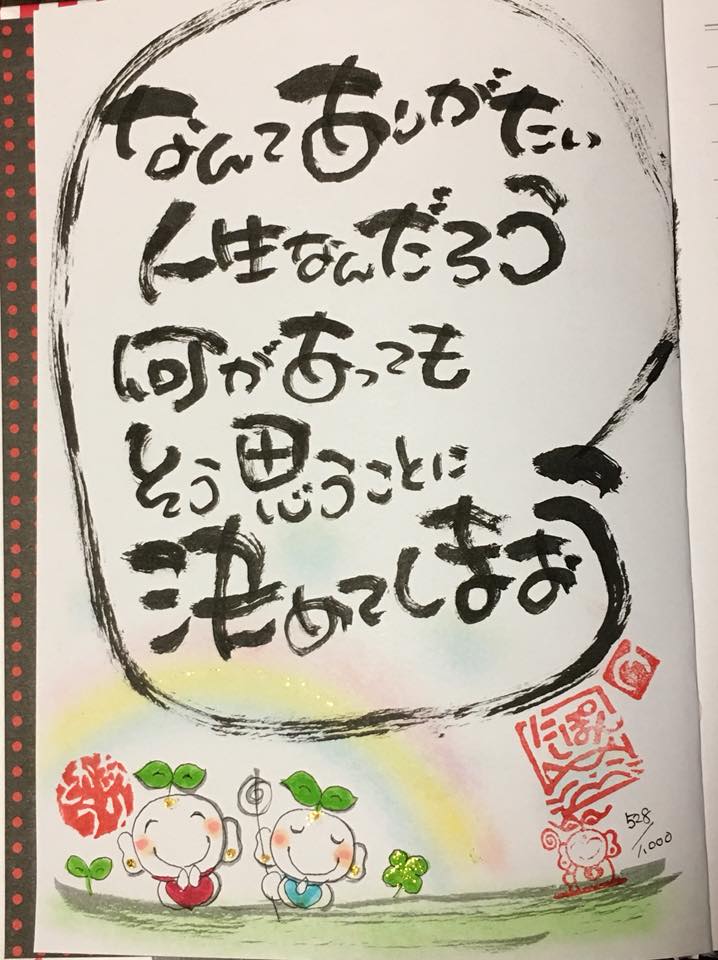 なんてありがたい
人生なんだろう
何があっても
そう思うことに
決めてしまおう
にっぽん
528/1000